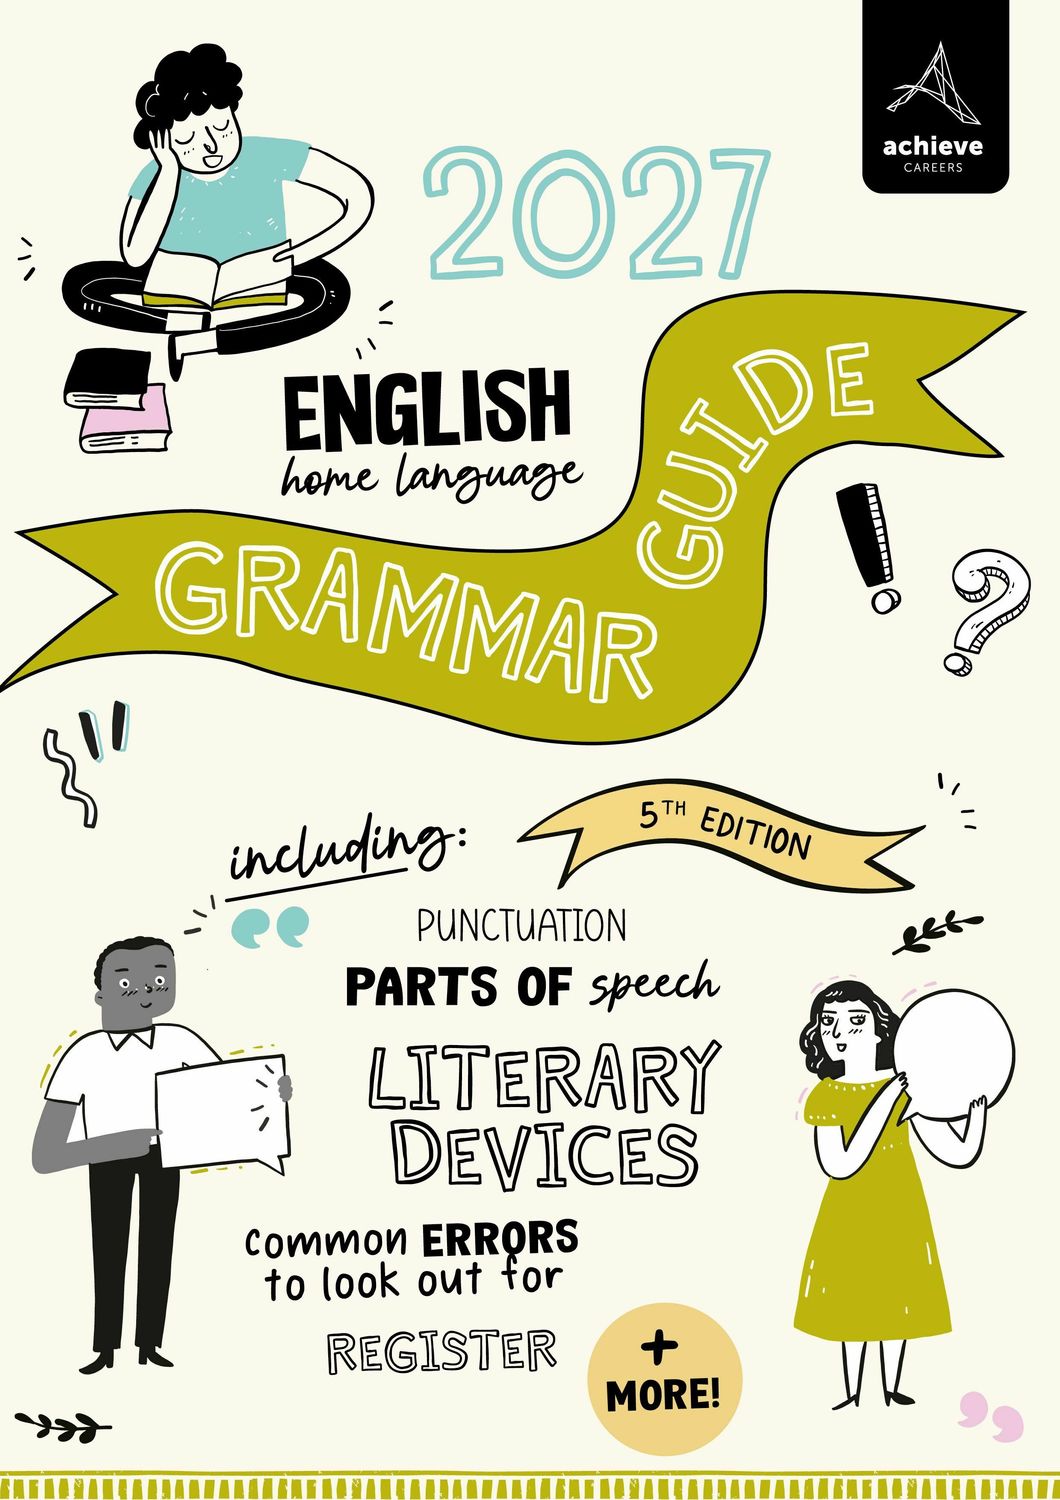 achieve
CAREERS
2027
ENGLISH
home language
GRAMMAR GUIDE
5TH EDITION
including:
PUNCTUATION
PARTS OF speech
LITERARY
DEVICES
common ERRORS
to look out for
REGISTER
+
MORE!